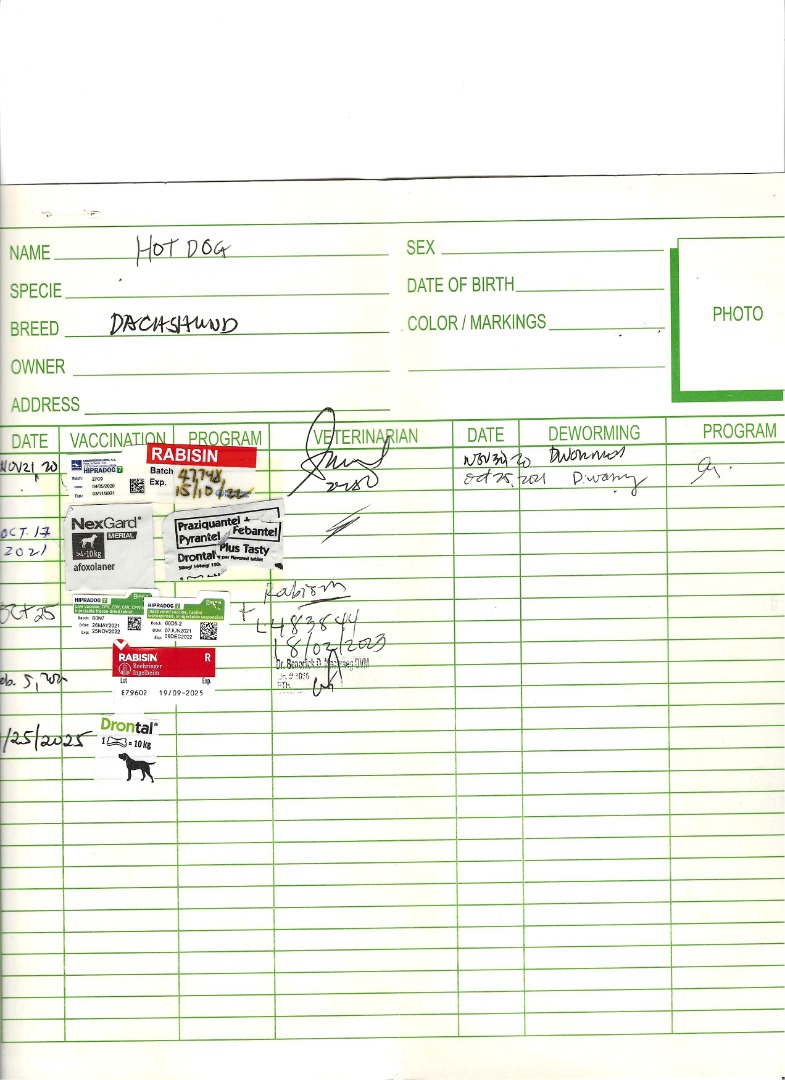 NAME HOT DOG
SPECIE
BREED DACHSHUND
OWNER
ADDRESS
SEX
DATE OF BIRTH
COLOR / MARKINGS
PHOTO
DATE VACCINATION PROGRAM VETERINARIAN DATE DEWORMING PROGRAM
NOV 21, 20
HIPRADOG 7
RABISIN
Batch 47748
Exp. 15/10/22
NOV 30, 20
Oct 25, 2021
OCT. 17
2021
NexGard®
MERIAL
>4-10kg
afoxolaner
Praziquantel +
Pyrantel Febantel
Drontal Plus Tasty
Oct 25
HIPRADOG 7
Batch: 60N7
DOM: 26MAY2021
Exp: 25NOV2022
HIPRADOG 7
DOM: 07JUN2021
Exp: 06DEC2022
+ Rabisin
L483844
18/02/2023
RABISIN R
Boehringer
Ingelheim
Lot Exp.
E79602 19/09-2025
5,
/25/2025
Drontal®
1 = 10 kg